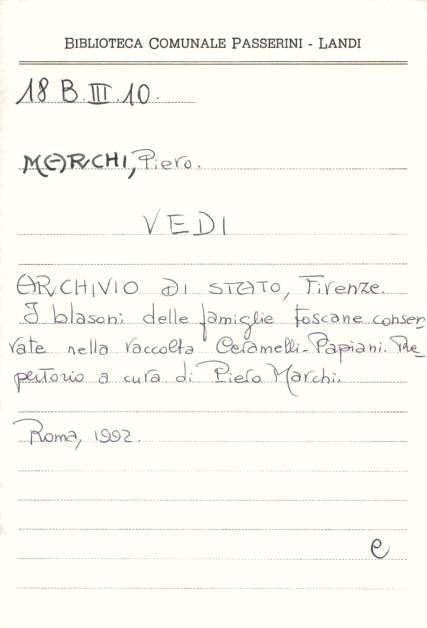 BIBLIOTECA COMUNALE PASSERINI - LANDI
18 B.III.10.
MARCHI, Piero.
VEDI
ARCHIVIO DI STATO, Firenze.
I blasoni delle famiglie toscane conser-
vate nella raccolta Ceramelli-Papiani. Re-
pertorio a cura di Piero Marchi.
Roma, 1992.
e